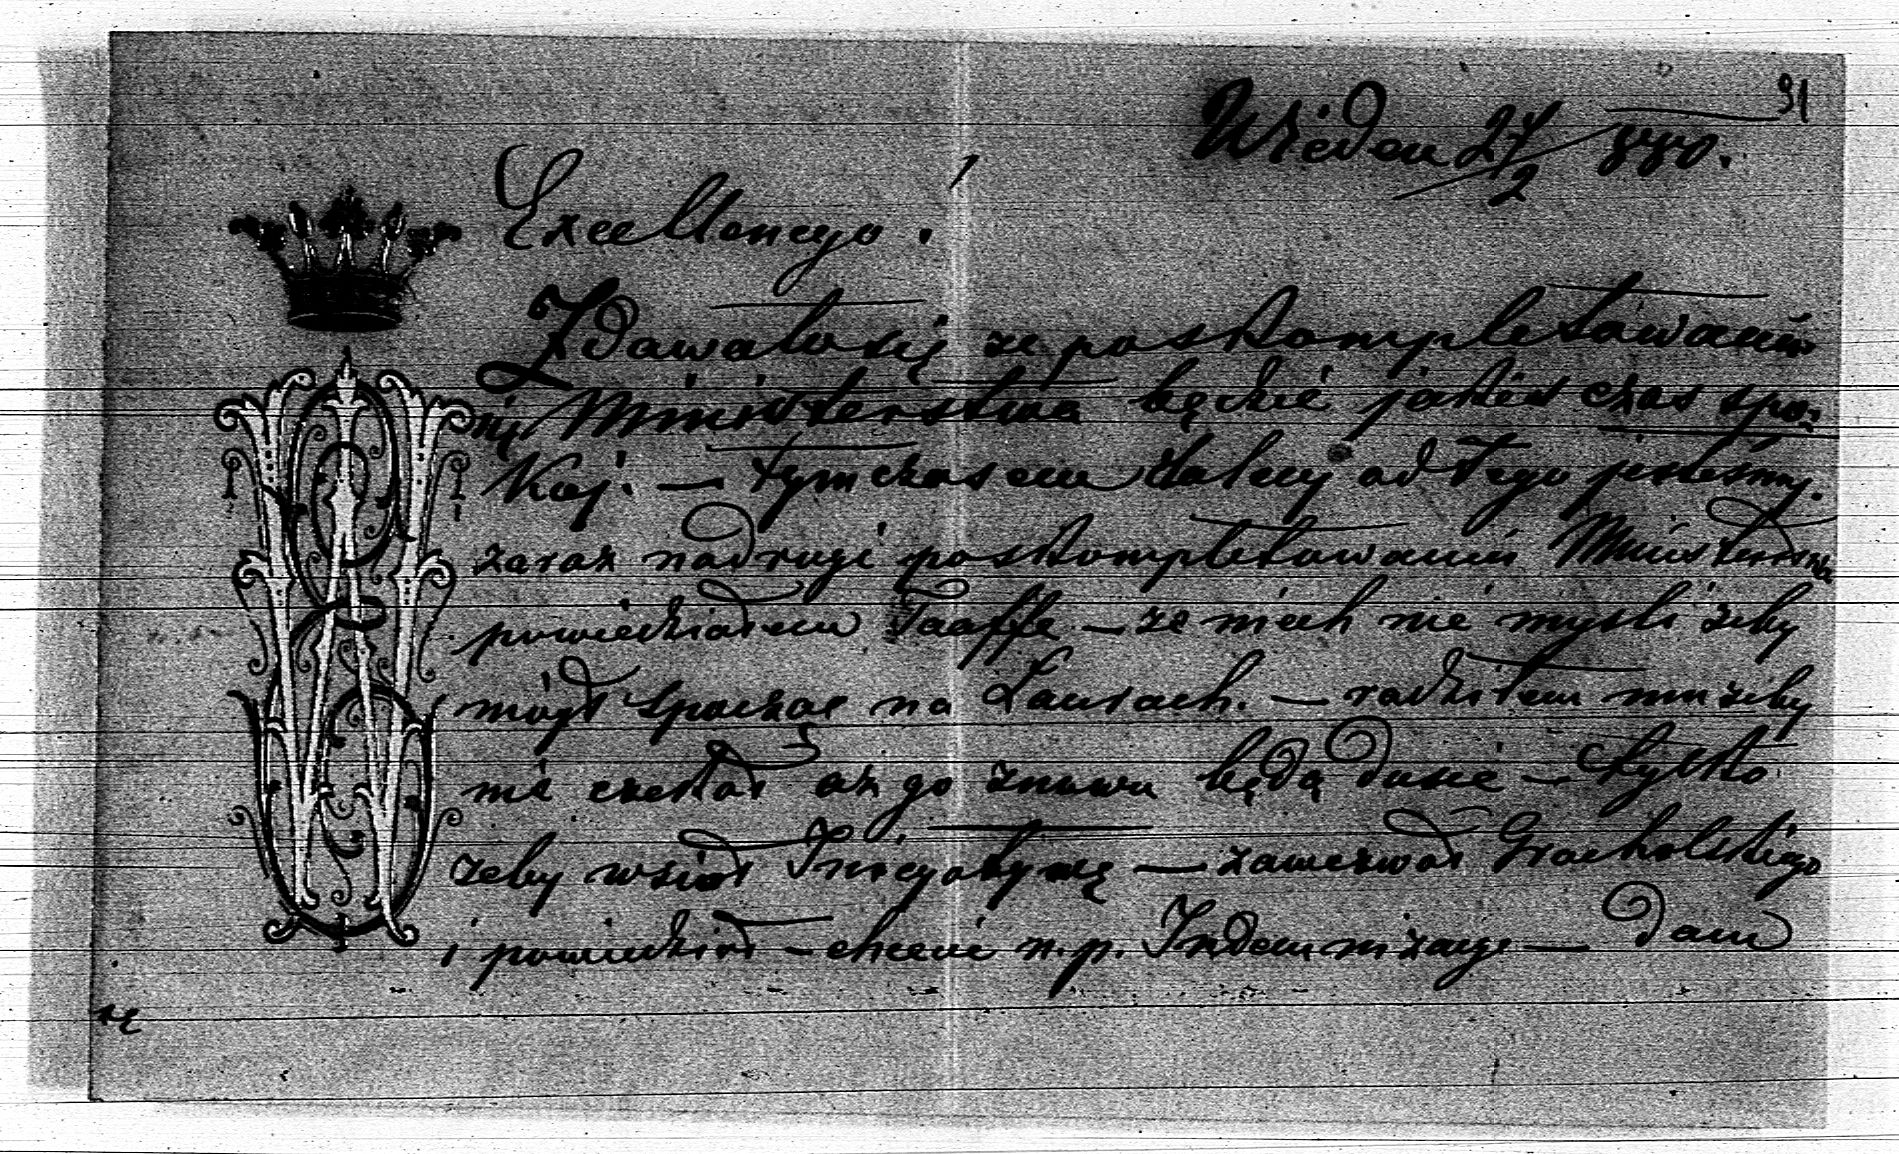 91
Wiédeń 24/2 880.
Excellencyo.
Zdawało się że po skompletowaniu
Ministerstwa będzié jakiś czas spo-
kój. — tymczasem daléj od tego jesteśmy.
zaraz na drugi po skompletowaniu Ministerstwa
powiedziałem Taaffe — że niech nié myśli żeby
mógł spocząć na Laurach. — radziłem mu żeby
nié czekał aż go znowu będą dusić — tylko
żeby wziął Inicyatywę — zawezwał Grocholskiego
i powiedział — chcecié n.p. Indemnizacyi — dam